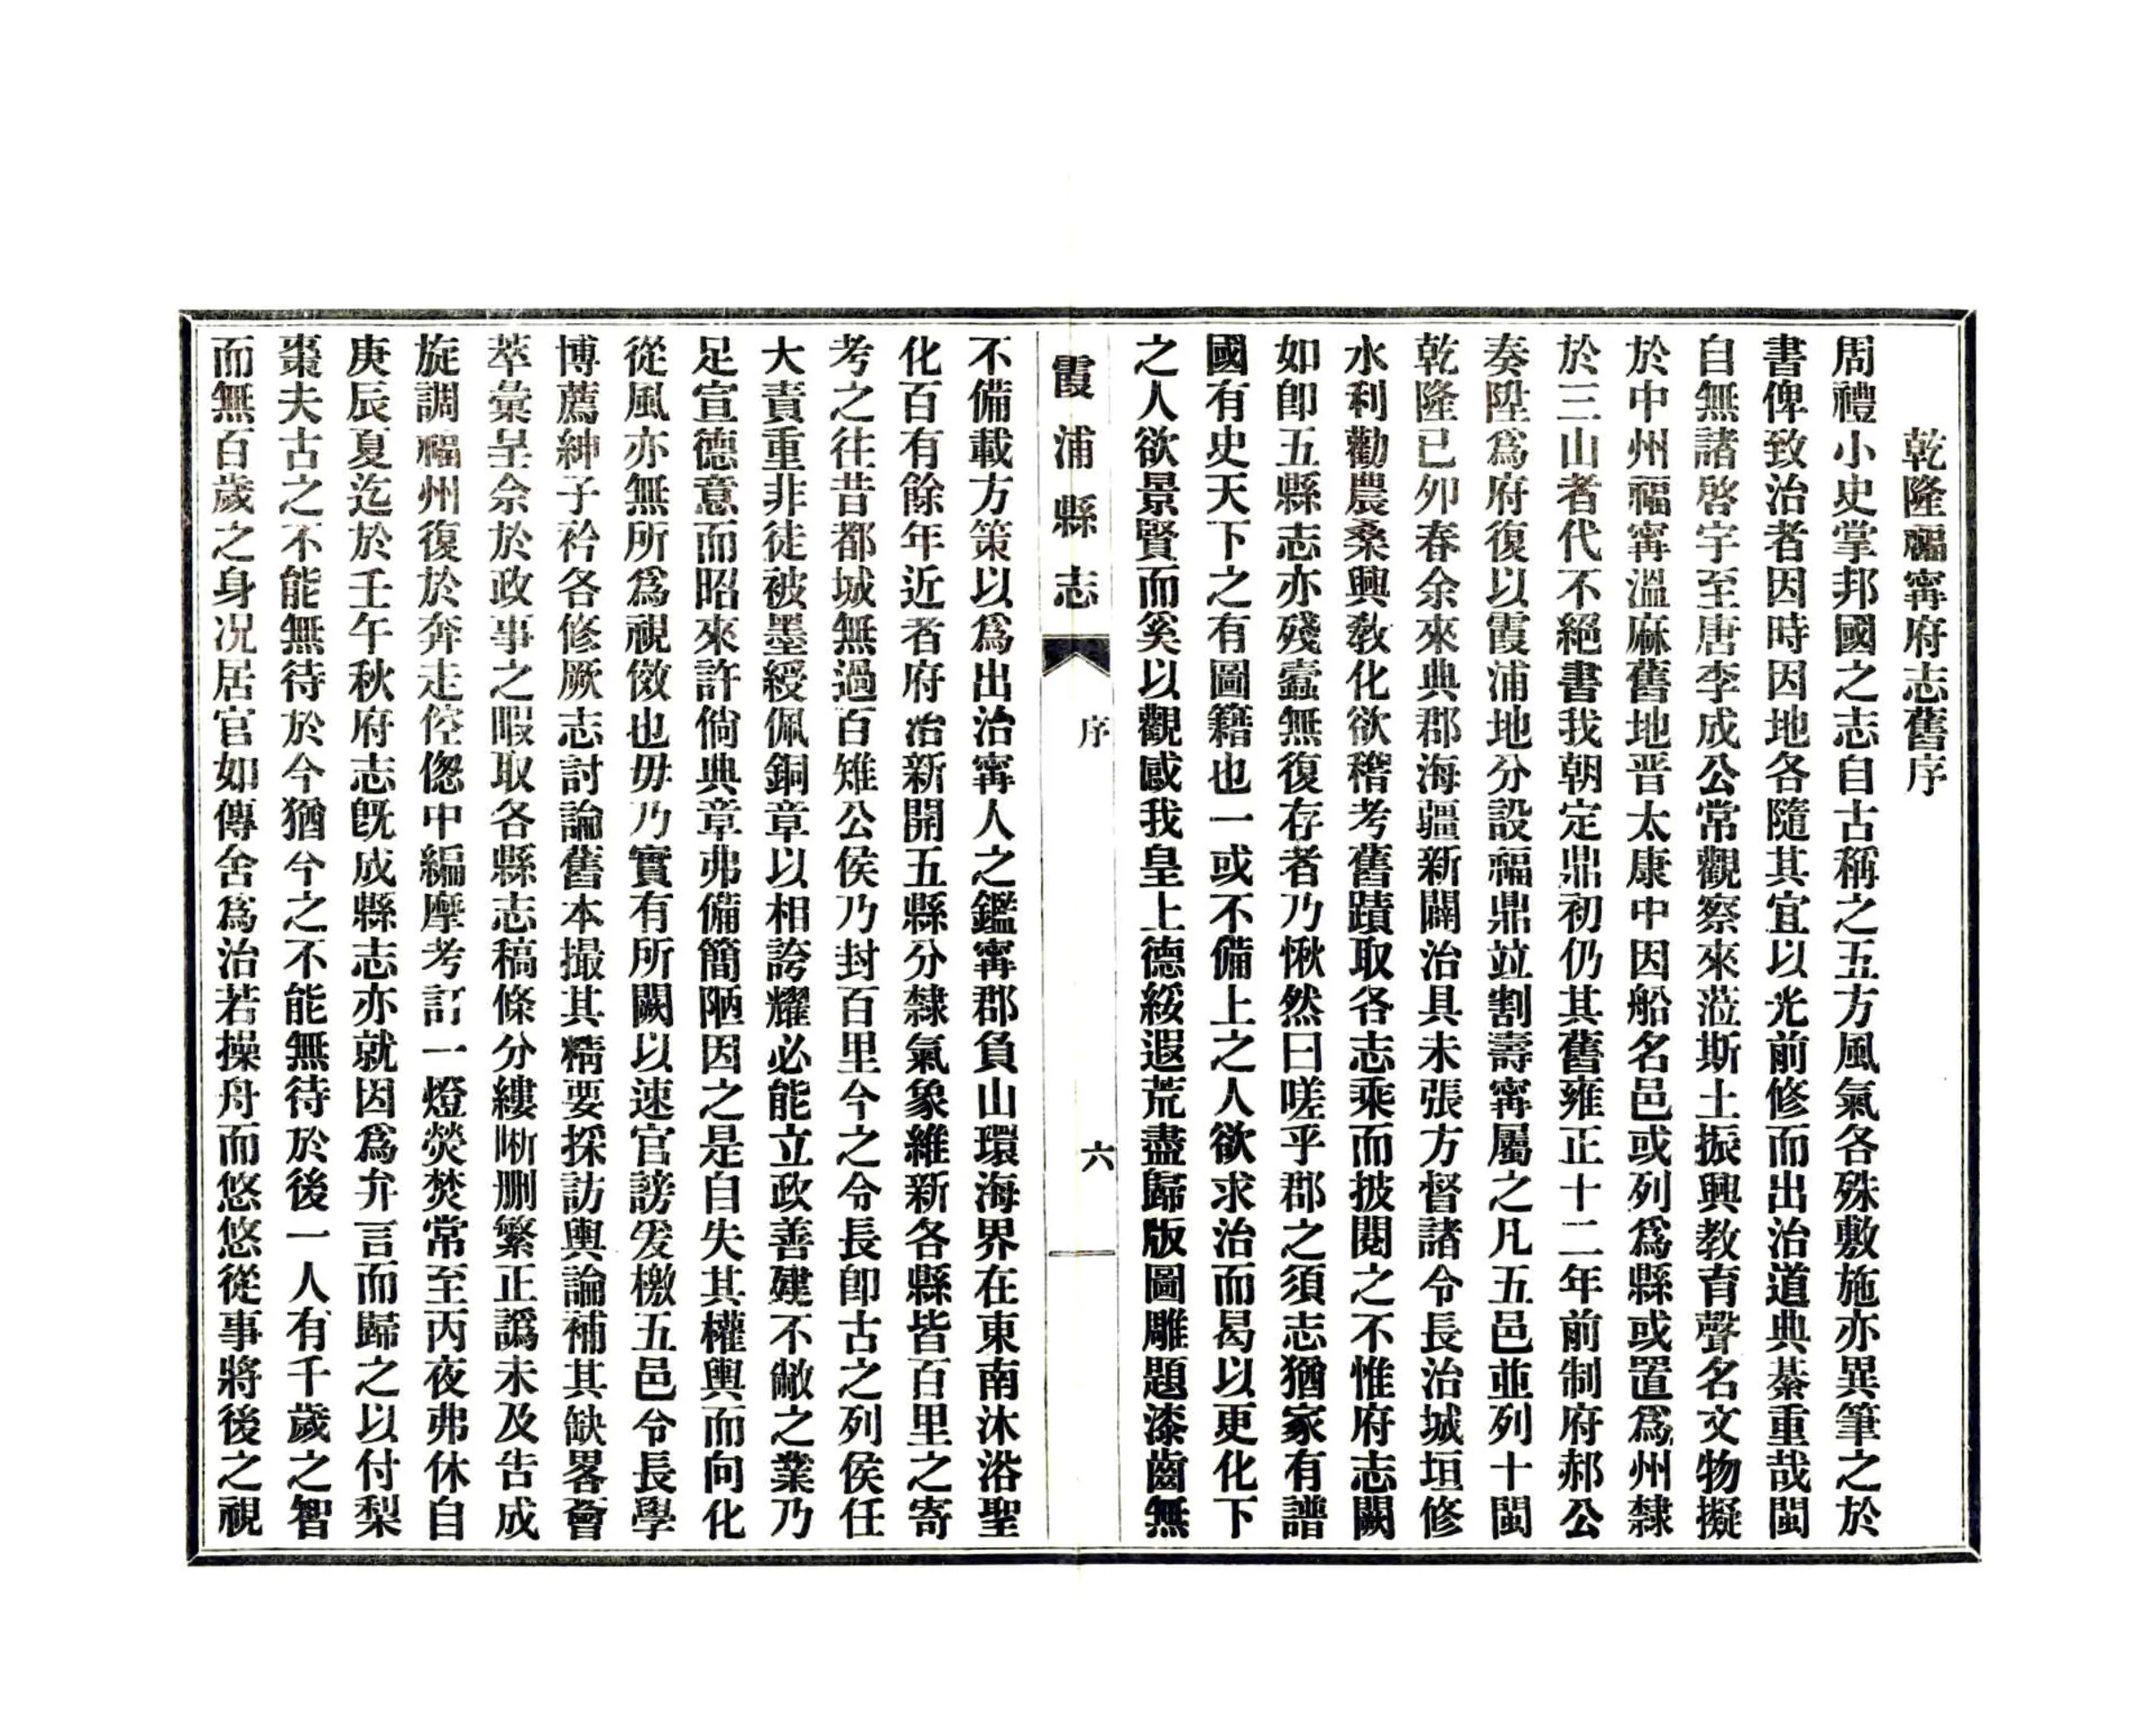 乾隆福寗府志舊序
周禮小史掌邦國之志自古稱之五方風氣各殊敷施亦異筆之於
書俾致治者因時因地各隨其宜以光前修而出治道典綦重哉閩
自無諸啓宇至唐李成公常觀察來蒞斯土振興教育聲名文物擬
於中州福寗溫麻舊地晋太康中因船名邑或列爲縣或置爲州隸
於三山者代不絕書我朝定鼎初仍其舊雍正十二年前制府郝公
奏陞爲府復以霞浦地分設福鼎竝割壽寗屬之凡五邑並列十閩
乾隆己夘春余來典郡海疆新闢治具未張方督諸令長治城垣修
水利勸農桑興教化欲稽考舊蹟取各志乘而披閱之不惟府志闕
如卽五縣志亦殘蠹無復存者乃愀然曰嗟乎郡之須志猶家有譜
國有史天下之有圖籍也一或不備上之人欲求治而曷以更化下
之人欲景賢而奚以觀感我皇上德綏遐荒盡歸版圖雕題漆齒無
霞浦縣志 序 六
不備載方策以爲出治寗人之鑑寗郡負山環海界在東南沐浴聖
化百有餘年近者府治新開五縣分隸氣象維新各縣皆百里之寄
考之往昔都城無過百雉公侯乃封百里今之令長卽古之列侯任
大責重非徒被墨綬佩銅章以相誇耀必能立政善建不敝之業乃
足宣德意而昭來許倘典章弗備簡陋因之是自失其權輿而向化
從風亦無所爲視傚也毋乃實有所闕以速官謗爰檄五邑令長學
博薦紳子衿各修厥志討論舊本撮其精要採訪輿論補其缺畧薈
萃彙呈余於政事之暇取各縣志稿條分縷晰删繁正譌未及告成
旋調福州復於奔走倥偬中編摩考訂一燈熒焚常至丙夜弗休自
庚辰夏迄於壬午秋府志旣成縣志亦就因爲弁言而歸之以付梨
棗夫古之不能無待於今猶今之不能無待於後一人有千歲之智
而無百歲之身况居官如傳舍爲治若操舟而悠悠從事將後之視